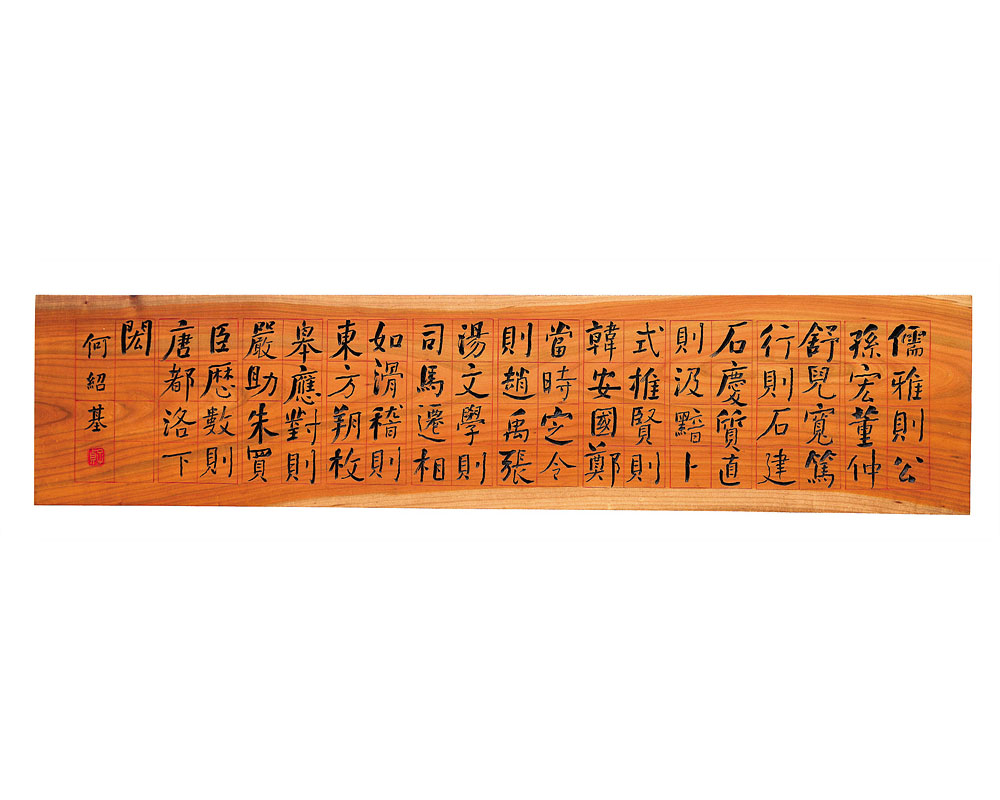 儒雅則公
孫宏董仲
舒兒寬篤
行則石建
石慶質直
則汲黯卜
式推賢則
韓安國鄭
當時定令
則趙禹張
湯文學則
司馬遷相
如滑稽則
東方朔枚
皋應對則
嚴助朱買
臣歷數則
唐都洛下
閎
何紹基